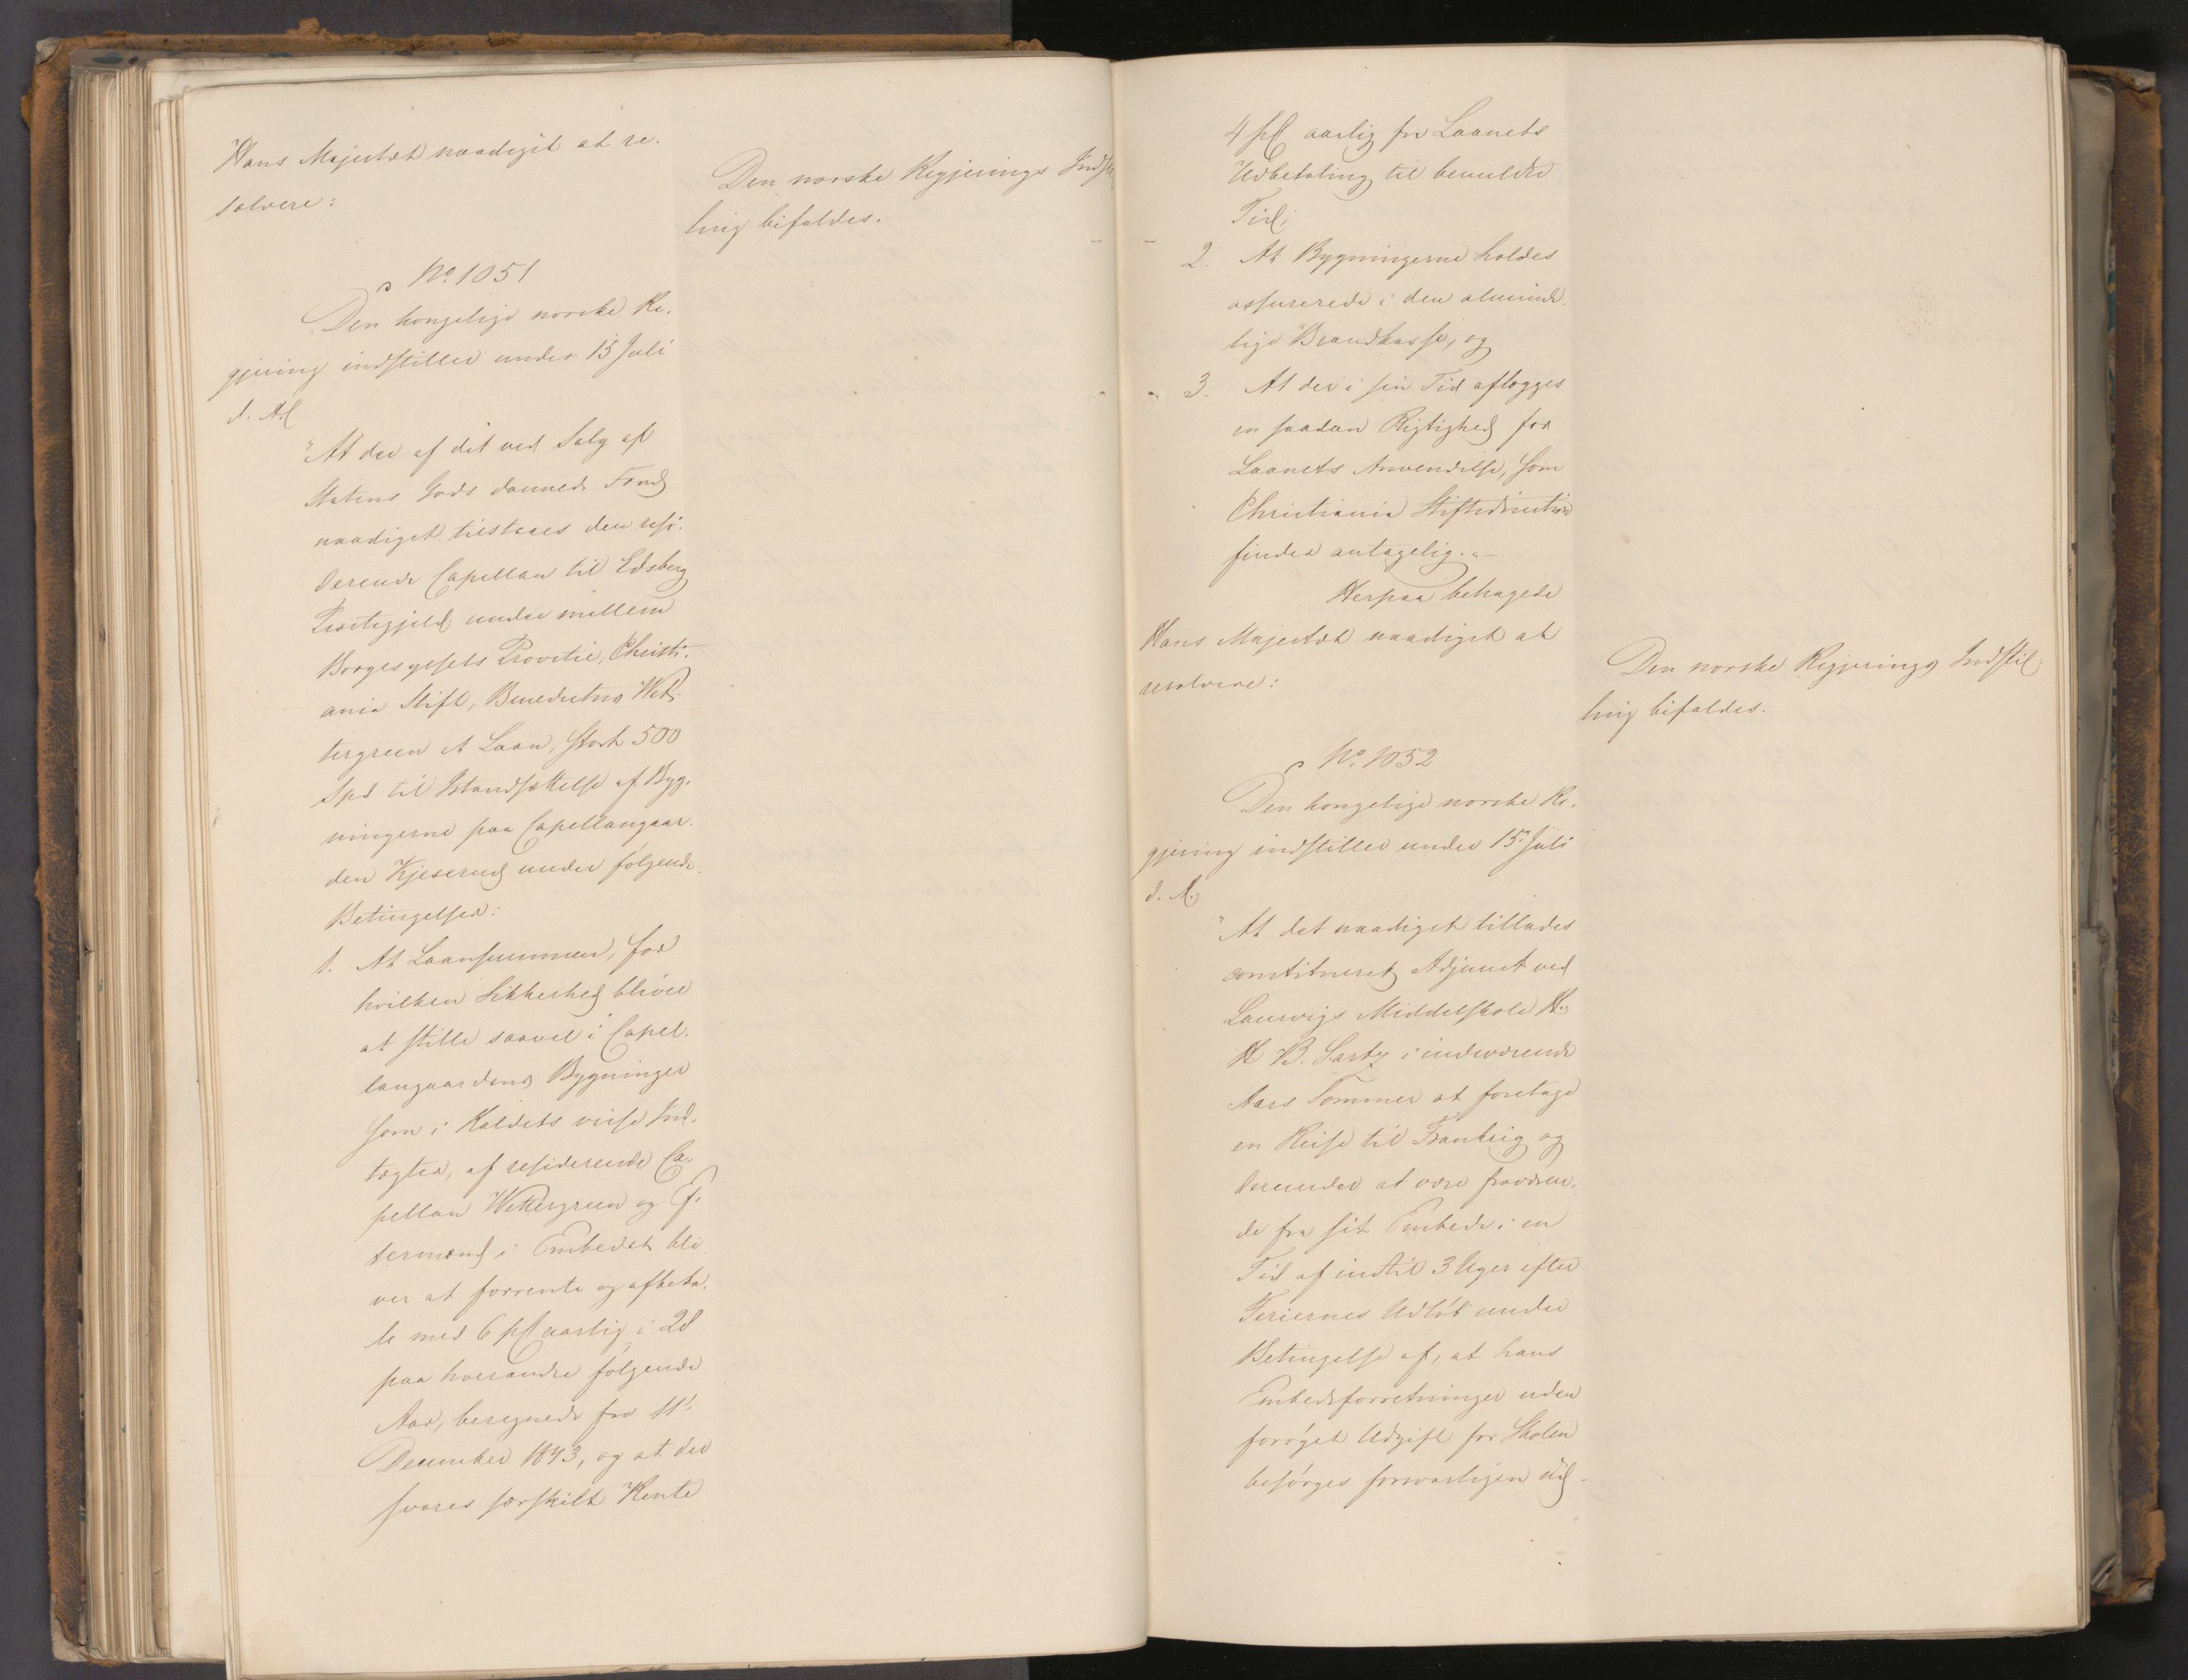 Hans Majestæt naadigst at re-
solvere:
Den norske Regjerings Indstil
ling bifaldes.
No 1051
Den kongelige norske Re-
gjering indstiller under 15 Juli
d. A.
"At der af det ved Salg af
Statens Gods dannede Fond
naadigst tilstaaes den resi-
derende Capellan til Edsberg
Præstegjeld under mellem
Borgesyssels Provstie, Christi-
ania Stift, Benedictus Wet-
tergreen et Laan, stort 500
Spd til Istandsættelse af Byg-
ningerne paa Capellangaar-
den Kjeserud under følgende
Betingelser:
1. At Laansummen, for
hvilken Sikkerhed bliver
at stille saavel i Capel-
langaardens Bygninger
som i Kaldets visse Ind-
tægter, af residerende Ca-
pellan Wettergreen og Ef-
termænd i Embedet bli-
ver at forrente og afbeta-
le med 6 pCt aarlig i 28
paa hverandre følgende
Aar, beregnede fra 11te
December 1843, og at der
svares særskilt Rente
4 pCt aarlig fra Laanets
Udbetaling til bemeldte
Tid;
2. At Bygningerne holdes
assurerede i den alminde-
lige Brandkasse, og
3. At der i sin Tid aflægges
en saadan Rigtighed for
Laanets Anvendelse, som
Christiania Stiftsdirection
finder antagelig."
Herpaa behagede
Hans Majestæt naadigst at
resolvere:
Den norske Regjerings Indstil
ling bifaldes.
No 1052
Den kongelige norske Re-
gjering indstiller under 15de Juli
d. A.
"At det naadigst tillades
constitueret Adjunct ved
Laurvigs Middelskole H.
H B. Sartz i indeværende
Aars Sommer at foretage
en Reise til Frankrig og
derunder at være fraværen-
de fra sit Embede i en
Tid af indtil 3 Uger efter
Feriernes Udløb under
Betingelse af, at hans
Embedsforretninger uden
forøget Udgift for Skolen
besørges forsvarligen ud-